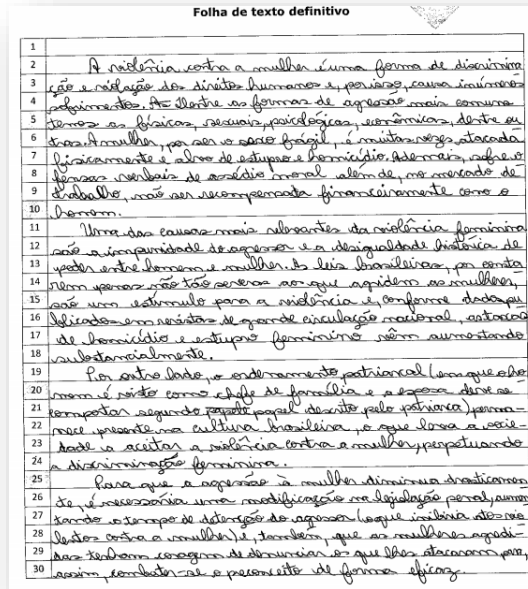 Folha de texto definitivo
1
2 A violência contra a mulher é uma forma de discrimina
3 ção e violação dos direitos humanos e, por isso, causa inúmeros
4 sofrimentos. Dentre as formas de agressão mais comuns
5 temos as físicas, sexuais, psicológicas, econômicas, dentre ou
6 tras. A mulher, por ser o sexo frágil, é muitas vezes atacada
7 fisicamente e alvo de estupro e homicídio. Ademais, sofre o
8 verbais de assédio moral além de, no mercado de
9 trabalho, não ser recompensada financeiramente como o
10 homem.
11 Uma das causas mais relevantes da violência feminina
12 são a impunidade do agressor e a desigualdade histórica de
13 poder entre homem e mulher. As leis brasileiras, por conte
14 rem penas não tão severas aos que agridem as mulheres,
15 são um estímulo para a violência e, conforme dados pu
16 blicados em revistas de grande circulação nacional, as taxas
17 de homicídio e estupro feminino vêm aumentando
18 substancialmente.
19 Por outro lado, o ordenamento patriarcal (em que o ho
20 mem é visto como chefe de família e a esposa deve se
21 comportar segundo papel descrito pelo patriarca) perma-
22 nece presente na cultura brasileira, o que leva a socie-
23 dade a aceitar a violência contra a mulher, perpetuando
24 a discriminação feminina.
25 Para que a agressão à mulher diminua drasticamen
26 te, é necessária uma modificação na legislação penal, aumen
27 tando o tempo de detenção do agressor (o que inibiria atos vio
28 lentos contra a mulher) e, também, que as mulheres agredi-
29 das tenham coragem de denunciar os que lhes atacaram para,
30 assim, combater-se o preconceito de forma eficaz.